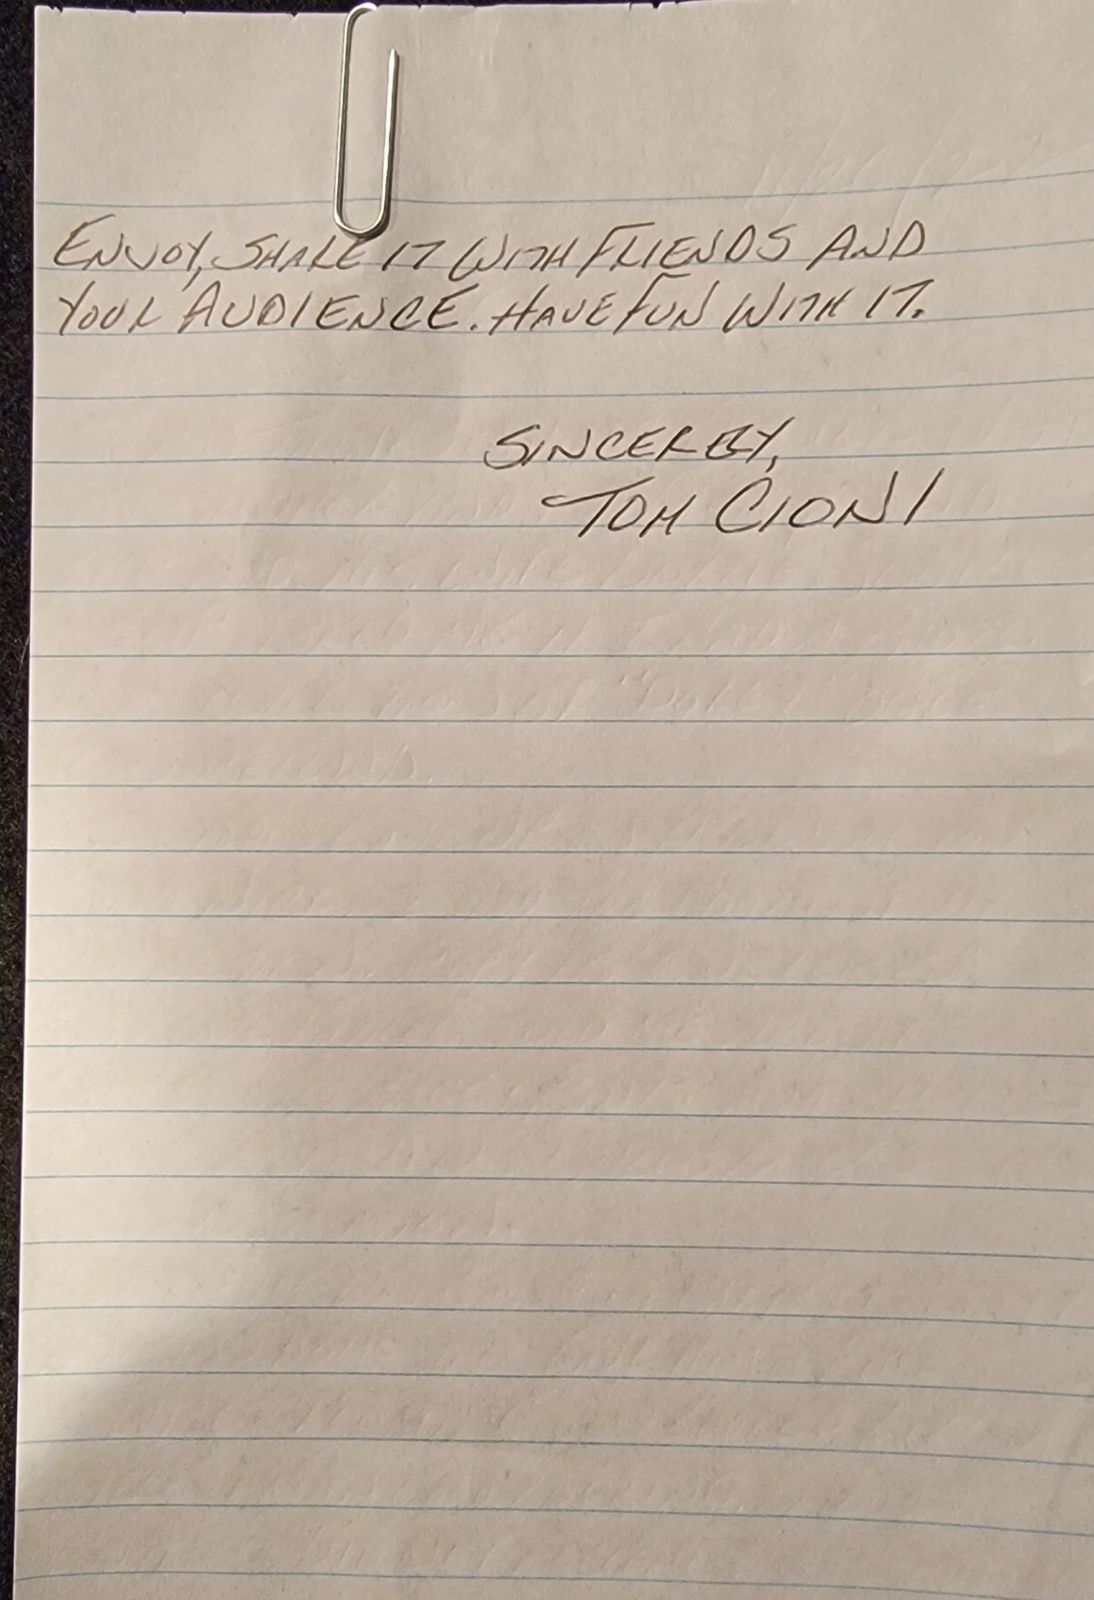 ENJOY, SHARE IT WITH FRIENDS AND
YOUR AUDIENCE. HAVE FUN WITH IT.
SINCERELY,
TOM CIONI